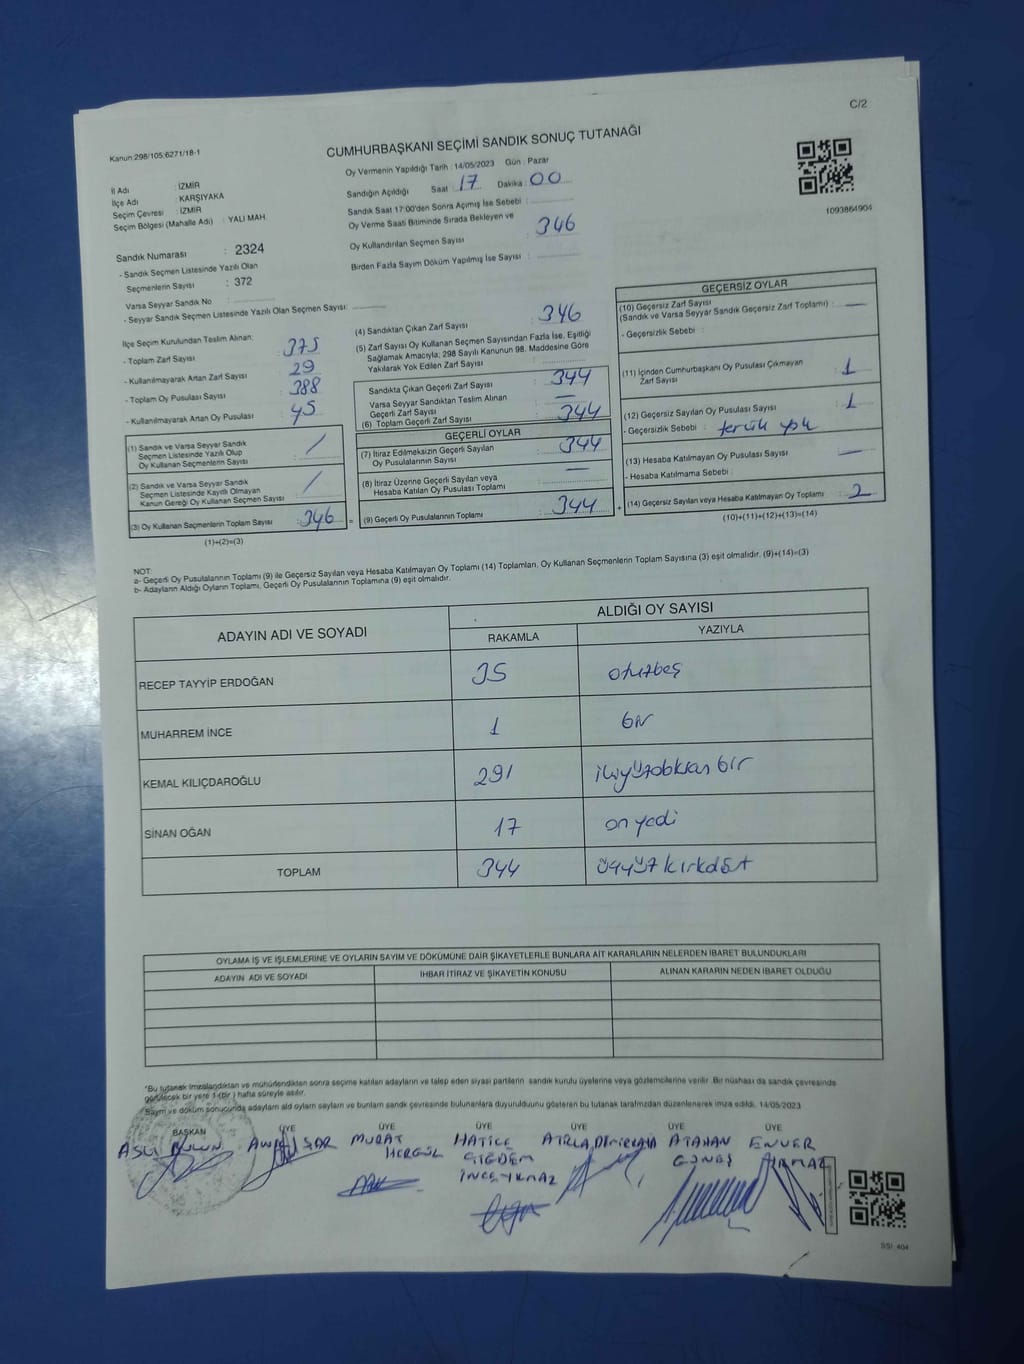 C/2
Kanun:298/105;6271/18-1
CUMHURBAŞKANI SEÇİMİ SANDIK SONUÇ TUTANAĞI
Oy Vermenin Yapıldığı Tarih : 14/05/2023 Gün : Pazar
İl Adı : İZMİR
İlçe Adı : KARŞIYAKA
Seçim Çevresi : İZMİR
Seçim Bölgesi (Mahalle Adı) : YALI MAH.
Sandığın Açıldığı Saat : 17 Dakika : 00
Sandık Saat 17:00'den Sonra Açılmış İse Sebebi :
Oy Verme Saati Bitiminde Sırada Bekleyen ve
Oy Kullandırılan Seçmen Sayısı : 346
Birden Fazla Sayım Döküm Yapılmış İse Sayısı :
1093864904
Sandık Numarası : 2324
- Sandık Seçmen Listesinde Yazılı Olan
Seçmenlerin Sayısı : 372
Varsa Seyyar Sandık No :
- Seyyar Sandık Seçmen Listesinde Yazılı Olan Seçmen Sayısı:
İlçe Seçim Kurulundan Teslim Alınan;
- Toplam Zarf Sayısı : 375
- Kullanılmayarak Artan Zarf Sayısı : 29
- Toplam Oy Pusulası Sayısı : 388
- Kullanılmayarak Artan Oy Pusulası : 45
(1) Sandık ve Varsa Seyyar Sandık
Seçmen Listesinde Yazılı Olup
Oy Kullanan Seçmenlerin Sayısı : /
(2) Sandık ve Varsa Seyyar Sandık
Seçmen Listesinde Kayıtlı Olmayan
Kanun Gereği Oy Kullanan Seçmen Sayısı : /
(3) Oy Kullanan Seçmenlerin Toplam Sayısı : 346 =
(1)+(2)=(3)
(4) Sandıktan Çıkan Zarf Sayısı : 346
(5) Zarf Sayısı Oy Kullanan Seçmen Sayısından Fazla İse, Eşitliği
Sağlamak Amacıyla; 298 Sayılı Kanunun 98. Maddesine Göre
Yakılarak Yok Edilen Zarf Sayısı :
Sandıkta Çıkan Geçerli Zarf Sayısı : 344
Varsa Seyyar Sandıktan Teslim Alınan
Geçerli Zarf Sayısı : —
(6) Toplam Geçerli Zarf Sayısı : 344
GEÇERLİ OYLAR
(7) İtiraz Edilmeksizin Geçerli Sayılan
Oy Pusulalarının Sayısı : 344
(8) İtiraz Üzerine Geçerli Sayılan veya
Hesaba Katılan Oy Pusulası Toplamı : —
(9) Geçerli Oy Pusulalarının Toplamı : 344 +
GEÇERSİZ OYLAR
(10) Geçersiz Zarf Sayısı
(Sandık ve Varsa Seyyar Sandık Geçersiz Zarf Toplamı) : —
- Geçersizlik Sebebi :
(11) İçinden Cumhurbaşkanı Oy Pusulası Çıkmayan
Zarf Sayısı : 1
(12) Geçersiz Sayılan Oy Pusulası Sayısı : 1
- Geçersizlik Sebebi : tercih yok
(13) Hesaba Katılmayan Oy Pusulası Sayısı : —
- Hesaba Katılmama Sebebi :
(14) Geçersiz Sayılan veya Hesaba Katılmayan Oy Toplamı : 2
(10)+(11)+(12)+(13)=(14)
NOT:
a- Geçerli Oy Pusulalarının Toplamı (9) ile Geçersiz Sayılan veya Hesaba Katılmayan Oy Toplamı (14) Toplamları, Oy Kullanan Seçmenlerin Toplam Sayısına (3) eşit olmalıdır. (9)+(14)=(3)
b- Adayların Aldığı Oyların Toplamı, Geçerli Oy Pusulalarının Toplamına (9) eşit olmalıdır.
ADAYIN ADI VE SOYADI
ALDIĞI OY SAYISI
RAKAMLA YAZIYLA
RECEP TAYYİP ERDOĞAN 35 otuzbeş
MUHARREM İNCE 1 bir
KEMAL KILIÇDAROĞLU 291 ikiyüzdoksan bir
SİNAN OĞAN 17 on yedi
TOPLAM 344 üçyüz kırkdört
OYLAMA İŞ VE İŞLEMLERİNE VE OYLARIN SAYIM VE DÖKÜMÜNE DAİR ŞİKAYETLERLE BUNLARA AİT KARARLARIN NELERDEN İBARET BULUNDUKLARI
ADAYIN ADI VE SOYADI İHBAR İTİRAZ VE ŞİKAYETİN KONUSU ALINAN KARARIN NEDEN İBARET OLDUĞU
*Bu tutanak imzalandıktan ve mühürlendikten sonra seçime katılan adayların ve talep eden siyasi partilerin sandık kurulu üyelerine veya gözlemcilerine verilir. Bir nüshası da sandık çevresinde
görülecek bir yere 1 (bir) hafta süreyle asılır.
Sayım ve döküm sonucunda adayların aldı oyların sayıların ve bunların sandık çevresinde bulunanlara duyurulduunu gösteren bu tutanak tarafımzdan düzenlenerek imza edildi. 14/05/2023
BAŞKAN ÜYE ÜYE ÜYE ÜYE ÜYE ÜYE
ASLI MURAT HATİCE ATİLA DEMİRKAYA ATAHAN ENVER
HERGÜL ÇİĞDEM GÜNEŞ
İNCEYILMAZ
SSI 404